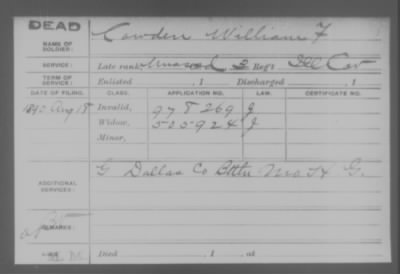 DEAD
NAME OF SOLDIER: Cowden William F
SERVICE: Late rank, Unasgd 2 Reg't Ill Cav
TERM OF SERVICE: Enlisted , 1 Discharged , 1
DATE OF FILING. CLASS. APPLICATION NO. LAW. CERTIFICATE NO.
1890 Aug 18 Invalid, 978269 J
Widow, 505924 J
Minor,
ADDITIONAL SERVICES: G Dallas Co Battn Mo H G.
REMARKS:
Died , 1 , at